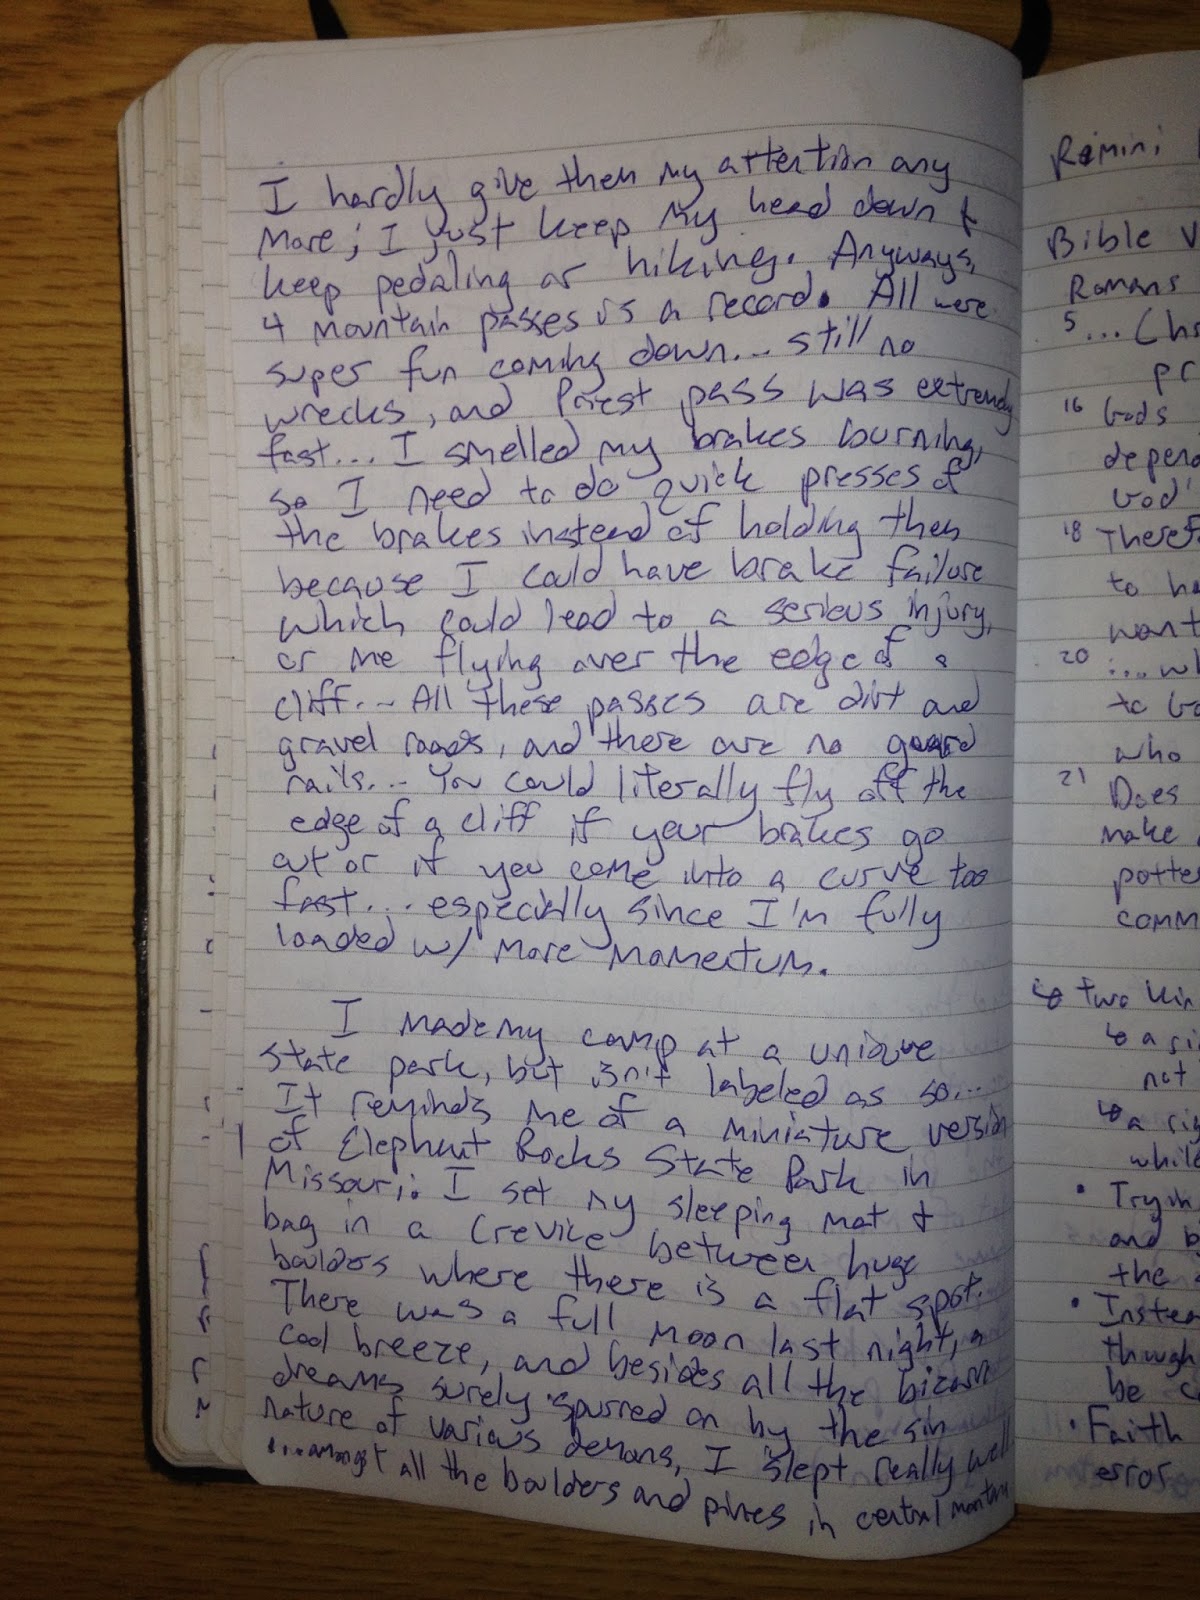 I hardly give them my attention any
more; I just keep my head down &
keep pedaling or hiking. Anyways,
4 mountain passes is a record. All were
super fun coming down... still no
wrecks, and Priest pass was extremely
fast... I smelled my brakes burning,
so I need to do quick presses of
the brakes instead of holding them
because I could have brake failure
which could lead to a serious injury,
or me flying over the edge of a
cliff... All these passes are dirt and
gravel roads, and there are no guard
rails... You could literally fly off the
edge of a cliff if your brakes go
out or if you come into a curve too
fast... especially since I'm fully
loaded w/ more momentum.
I made my camp at a unique
state park, but isn't labeled as so...
It reminds me of a miniature version
of Elephant Rocks State Park in
Missouri. I set my sleeping mat &
bag in a crevice between huge
boulders where there is a flat spot.
There was a full moon last night, a
cool breeze, and besides all the bizarre
dreams surely spurred on by the sin
nature of various demons, I slept really well
...amongst all the boulders and pines in central montana
Rimini
Bible V
Romans
5 ... (hs
pr
16 Gods
depend
God'
18 Theref
to ha
want
20 :...wh
to Go
who
21 Does
make
potte
comm
↳ two kin
↳ a si
not
↳ a sig
while
• Tryin
and b
the
• Instea
though
be c
• Faith
error